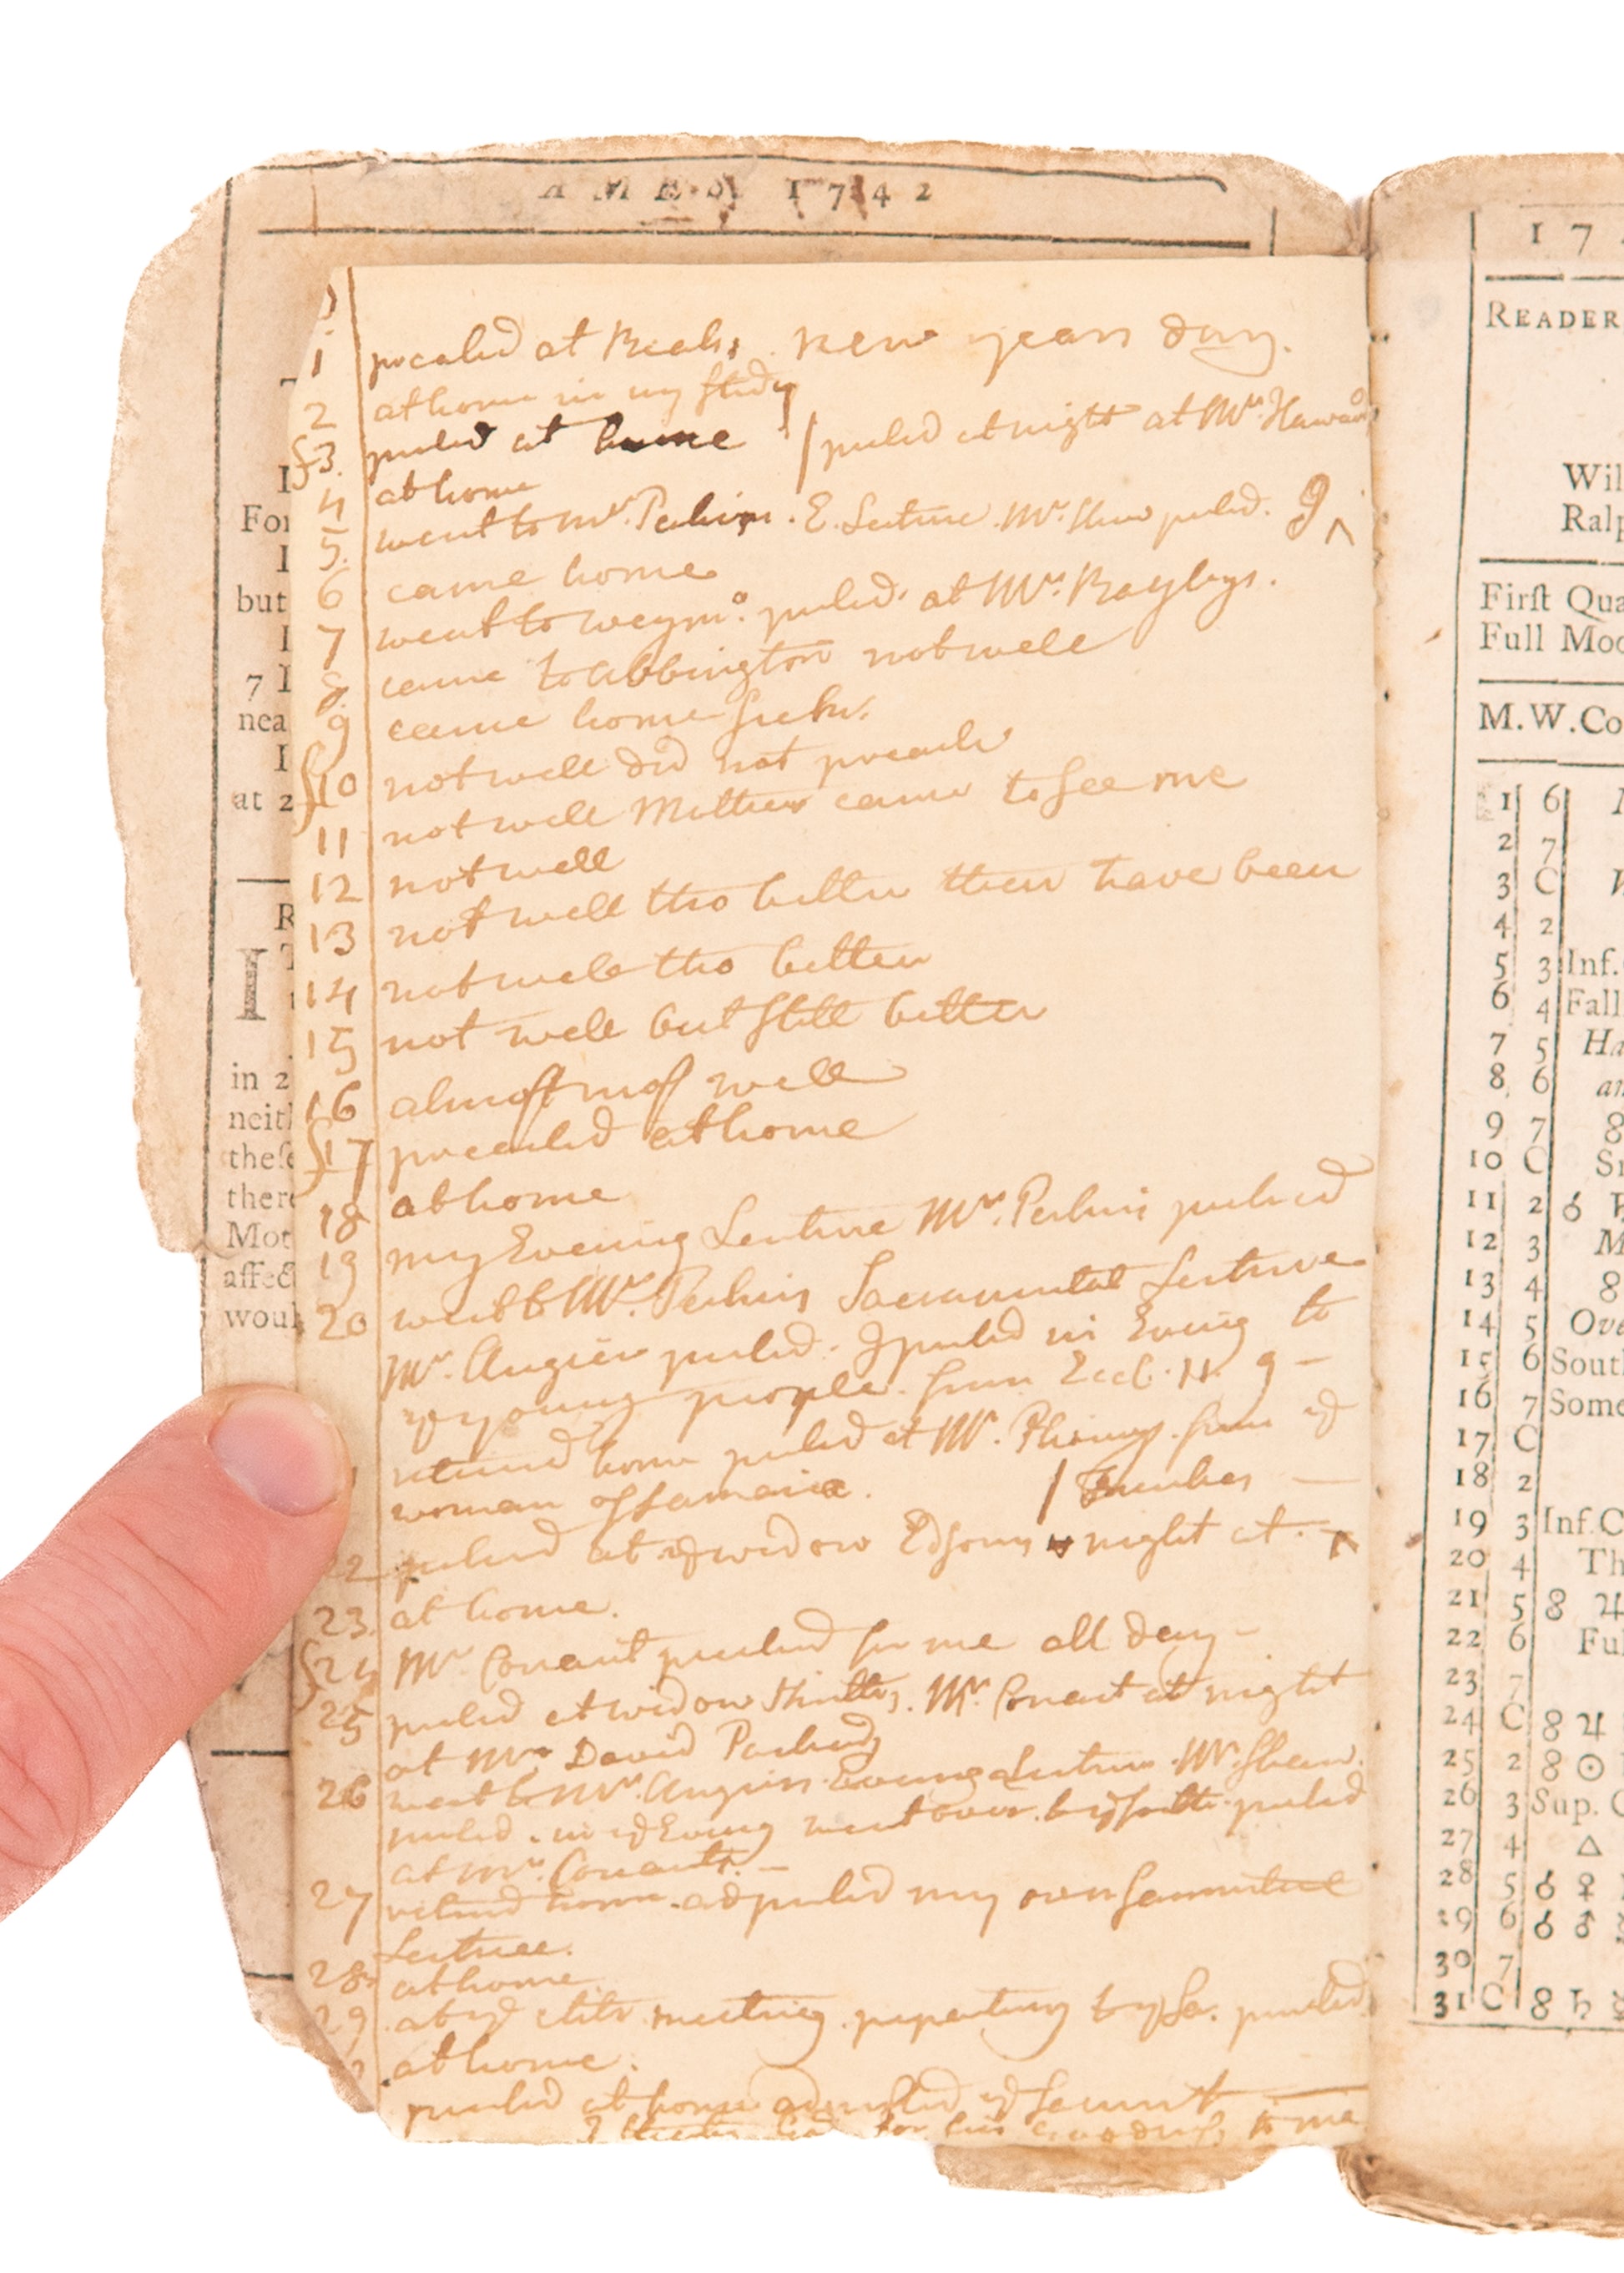 AMES 1742
1 preached at Beals. new years day.
2 at home in my study
S3. preachd at home / preachd at night at Mrs. Haward
4 at home
5. went to Mr. Perkins. E. Lecture. Mr. Shaw preachd. 9 ^
6 came home
7 went to weymo. preachd. at Mr. Bayleys.
8 came to Abbington not well
9 came home sick.
S10 not well did not preach
11 not well Mother came to see me
12 not well
13 not well tho better then have been
14 not well tho better
15 not well but still better
16 almost well
S17 preached at home
18 at home
19 my Evening Lecture Mr. Perkins preached
20 went to Mr. Perkins Sacramental Lecture
Mr. Angier preachd. I preachd in Evening to
ye young people. from Eccl. 11. 9 —
returnd home preachd at Mr. Phinneys. from ye
woman of Samaria. /
2 preachd at ye widow Edsons night at ^
23. at home.
S24 Mr Conant preachd for me all day —
25 preachd at widow Mr. Conant at night
at Mr. David
26 went to Mr. Angiers Evening Lecture. Mr. Shaw.
preachd. in ye Evening went over preachd
at Mr. Conants. —
27 returnd home. preachd my own
Lecture.
28. at home
29 at ye meeting. preachd
at home.
preachd at home ye
I thank God for his goodness to me
For
but
7 I
nea
at 2
R
I
in 2
neith
these
there
Mot
affec
woul
17
READER
Wil
Ralp
First Qua
Full Moo
M.W.Co
1 6
2 7
3 C
4 2
5 3 Inf.
6 4 Fall
7 5 Ha
8 6 an
9 7 8
10 C Sn
11 2 ☌ ♄
12 3 M
13 4 8
14 5 Ove
15 6 South
16 7 Some
17 C
18 2
19 3 Inf. C
20 4 Th
21 5 8 ♃
22 6 Ful
23 7
24 C 8 ♃
25 2 8 ☉
26 3 Sup. C
27 4 △
28 5 ☌ ♀
29 6 ☌ ♂
30 7
31 C 8 ♄